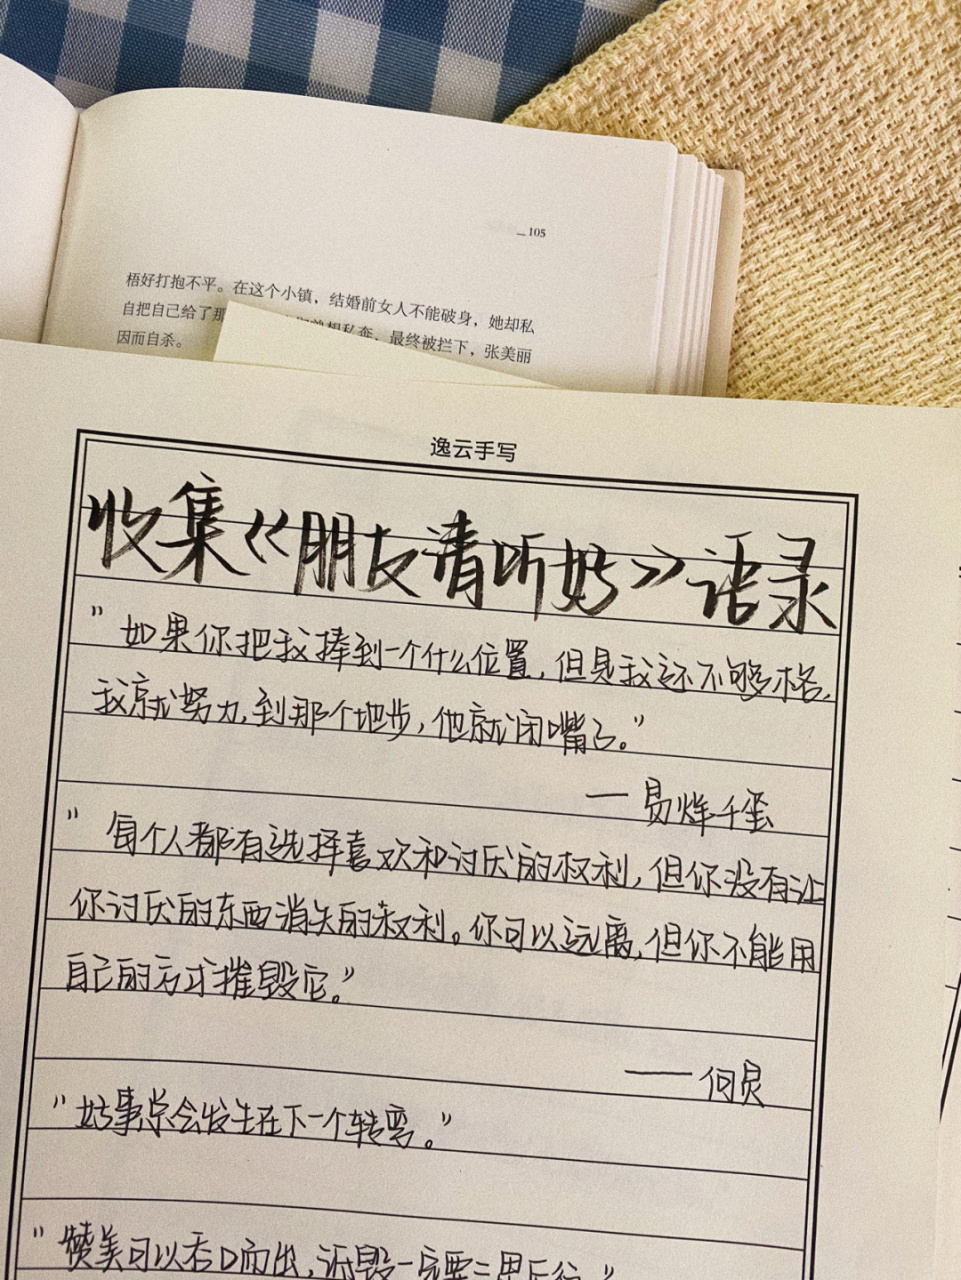 105
梧好打抱不平。在这个小镇，结婚前女人不能破身，她却私
自把自己给了那
想私奔，最终被拦下，张美丽
因而自杀。
逸云手写
收集《朋友请听好》语录
"如果你把我捧到一个什么位置，但是我还不够格，
我就努力，到那个地步，他就闭嘴了。"
— 易烊千玺
"每个人都有选择喜欢和讨厌的权利，但你没有让
你讨厌的东西消失的权利。你可以远离，但你不能用
自己的方式摧毁它。"
—— 何炅
"好事总会发生在下一个转弯。"
"赞美可以丢口而出，诋毁一定要三思后行。"